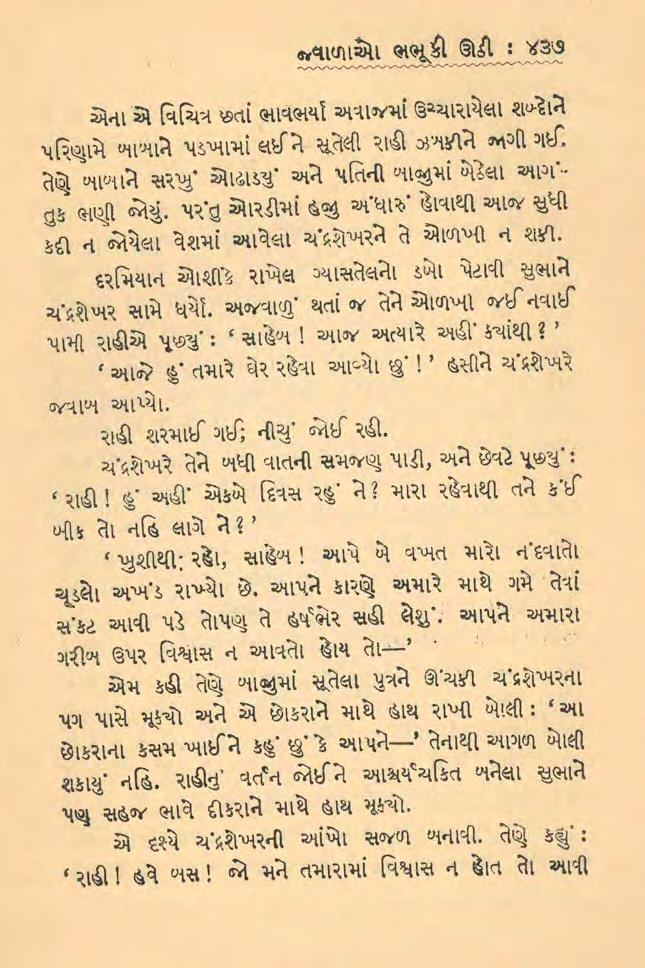 જ્વાળાઓ ભભૂકી ઊઠી : ૪૩૭
એના એ વિચિત્ર છતાં ભાવભર્યા અવાજમાં ઉચ્ચારાયેલા શબ્દોને
પરિણામે બાબાને પડખામાં લઈને સૂતેલી રાહી ઝબકીને જાગી ગઈ.
તેણે બાબાને સરખું ઓઢાડ્યું અને પતિની બાજુમાં બેઠેલા આગં-
તુક ભણી જોયું. પરંતુ ઓરડીમાં હજુ અંધારું હોવાથી આજ સુધી
કદી ન જોયેલા વેશમાં આવેલા ચંદ્રશેખરને તે ઓળખી ન શકી.
દરમિયાન ઓશીકે રાખેલ ગ્યાસતેલનો ડબો પેટાવી સુભાને
ચંદ્રશેખર સામે ધર્યો. અજવાળું થતાં જ તેને ઓળખી જઈ નવાઈ
પામી રાહીએ પૂછ્યું : ‘ સાહેબ ! આજ અત્યારે અહીં ક્યાંથી ? ’
‘ આજે હું તમારે ઘેર રહેવા આવ્યો છું ! ’ હસીને ચંદ્રશેખરે
જવાબ આપ્યો.
રાહી શરમાઈ ગઈ; નીચું જોઈ રહી.
ચંદ્રશેખરે તેને બધી વાતની સમજણ પાડી, અને છેવટે પૂછ્યું :
‘ રાહી ! હું અહીં એકબે દિવસ રહું ને ? મારા રહેવાથી તને કંઈ
બીક તો નહિ લાગે ને ? ’
‘ ખુશીથી; રહો, સાહેબ ! આપે બે વખત મારો નંદવાતો
ચૂડલો અખંડ રાખ્યો છે. આપને કારણે અમારે માથે ગમે તેવાં
સંકટ આવી પડે તોપણ તે હર્ષભેર સહી લેશું. આપને અમારા
ગરીબ ઉપર વિશ્વાસ ન આવતો હોય તો—’
એમ કહી તેણે બાજુમાં સૂતેલા પુત્રને ઊંચકી ચંદ્રશેખરના
પગ પાસે મૂક્યો અને એ છોકરાને માથે હાથ રાખી બોલી : ‘ આ
છોકરાના કસમ ખાઈને કહું છું કે આપને—’ તેનાથી આગળ બોલી
શકાયું નહિ. રાહીનું વર્તન જોઈને આશ્ચર્યચકિત બનેલા સુભાને
પણ સહજ ભાવે દીકરાને માથે હાથ મૂક્યો.
એ દૃશ્યે ચંદ્રશેખરની આંખો સજળ બનાવી. તેણે કહ્યું :
‘ રાહી ! હવે બસ ! જો મને તમારામાં વિશ્વાસ ન હોત તો આવી